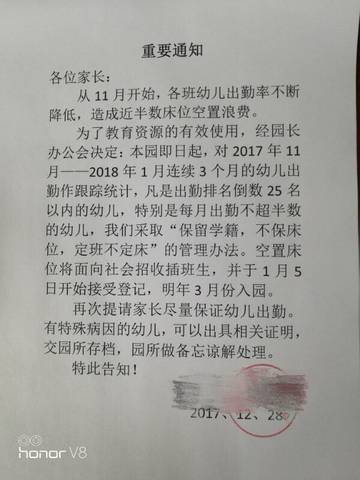 重要通知
各位家长：
从 11 月开始，各班幼儿出勤率不断
降低，造成近半数床位空置浪费。
为了教育资源的有效使用，经园长
办公会决定：本园即日起，对 2017 年 11
月——2018 年 1 月连续 3 个月的幼儿出
勤作跟踪统计，凡是出勤排名倒数 25 名
以内的幼儿，特别是每月出勤不超半数
的幼儿，我们采取“保留学籍，不保床
位，定班不定床”的管理办法。空置床
位将面向社会招收插班生，并于 1 月 5
日开始接受登记，明年 3 月份入园。
再次提请家长尽量保证幼儿出勤。
有特殊病因的幼儿，可以出具相关证明，
交园所存档，园所做备忘谅解处理。
特此告知！
2017、12、28
honor V8